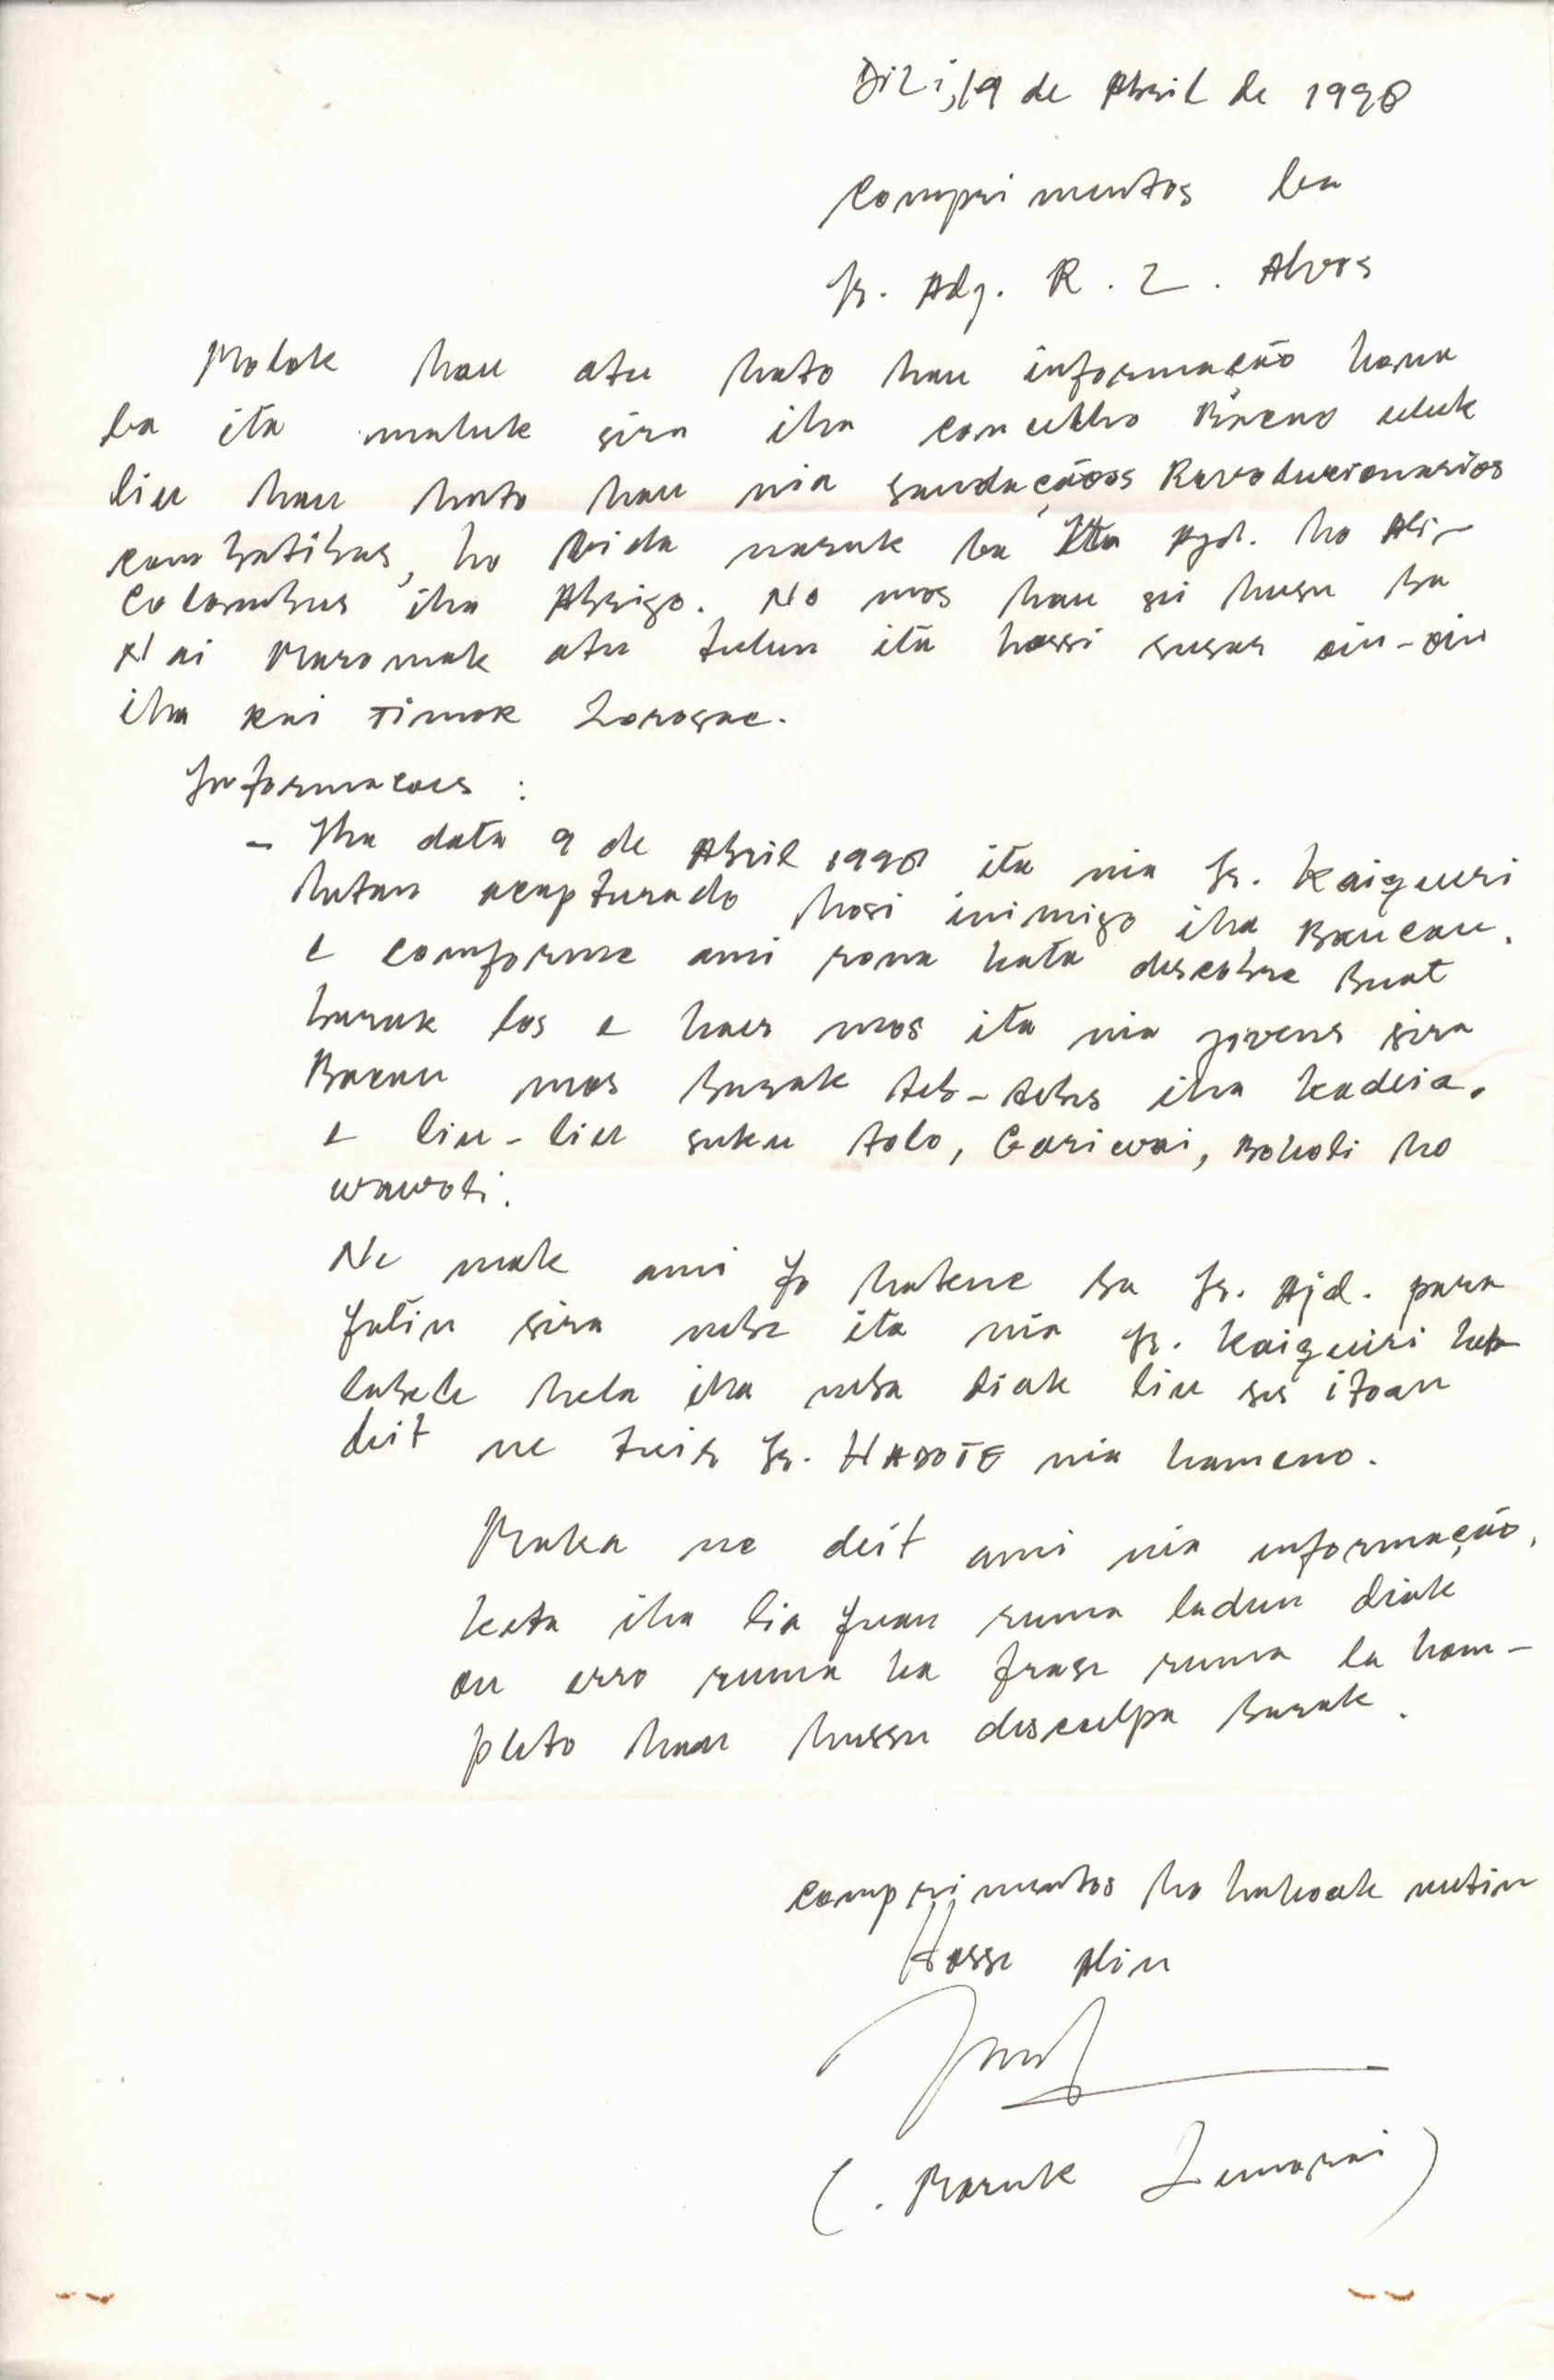 Dili, 19 de Abril de 1998
Comprimentos ba
Sr. Adj. R. L. Alves
Molok hau atu hato hau informação hona
ba ita maluk sira iha concelho Bacau uluk
liu hau hato hau nia saudaçãoes Revolucionarios
combatibas, ho Vida naruk ba Ita Ajd. ho Ali-
Colombus iha Abrigo. No mos hau sei husu ba
Nai Maromak atu tulun ita hossi susar oin-oin
iha rai Timor Lorosae.
Informacoes :
- Iha data 9 de Abril 1998 ita nia Sr. Kaiqueri
hetan acapturado hosi inimigo iha Baucau.
e comforme ami rona kata descobre Buat
barak los e haes mos ita nia jovens sira
Bacau mos barak teb-tebes iha kadeia.
e liu-liu suku Tolo, Gariwai, Boholi ho
wawoli.
Ne mak ami fo hatene ba Sr. Ajd. para
fatin sira nebe ita nia Sr. Kaiquiri
labele hela iha neba diak liu ses itoan
deit ne tuir Sr. HADOTE nia hameno.
Maka ne deit ami nia informação,
keta iha lia fuan ruma ladun diak
ou erro ruma ka frase ruma la kom-
pleto hau hussu desculpa barak.
comprimentos ho hakoak metin
Hosse Alin
(. Maruk Lemorai)